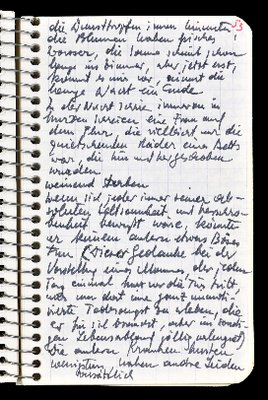 53
die
die Blumen haben frisches
Wasser, die Sonne scheint schon
lange ins Zimmer, aber jetzt erst,
kommt es mir vor, nimmt die
lange Nacht ein Ende
In der Nacht schrie immer in
kurzen eine Frau auf
dem Flur, die vielleicht nur die
quietschenden Räder eines Betts
war, die hin und hergeschoben
wurden
weinend sterben
wenn sich jeder immer seiner
Seltsamkeit und
bewusst wäre, könnte
er keinem andern etwas Böses
tun (Dieser Gedanke bei der
Vorstellung eines Mannes, der jeden
Tag einmal kurz vor die Tür tritt
nur um dort eine ganz
Todesangst zu erleben, die
er für sich braucht, aber im
Lebensablauf völlig
Die andern Kranken husten
wenigstens, haben andre Leiden
zusätzlich